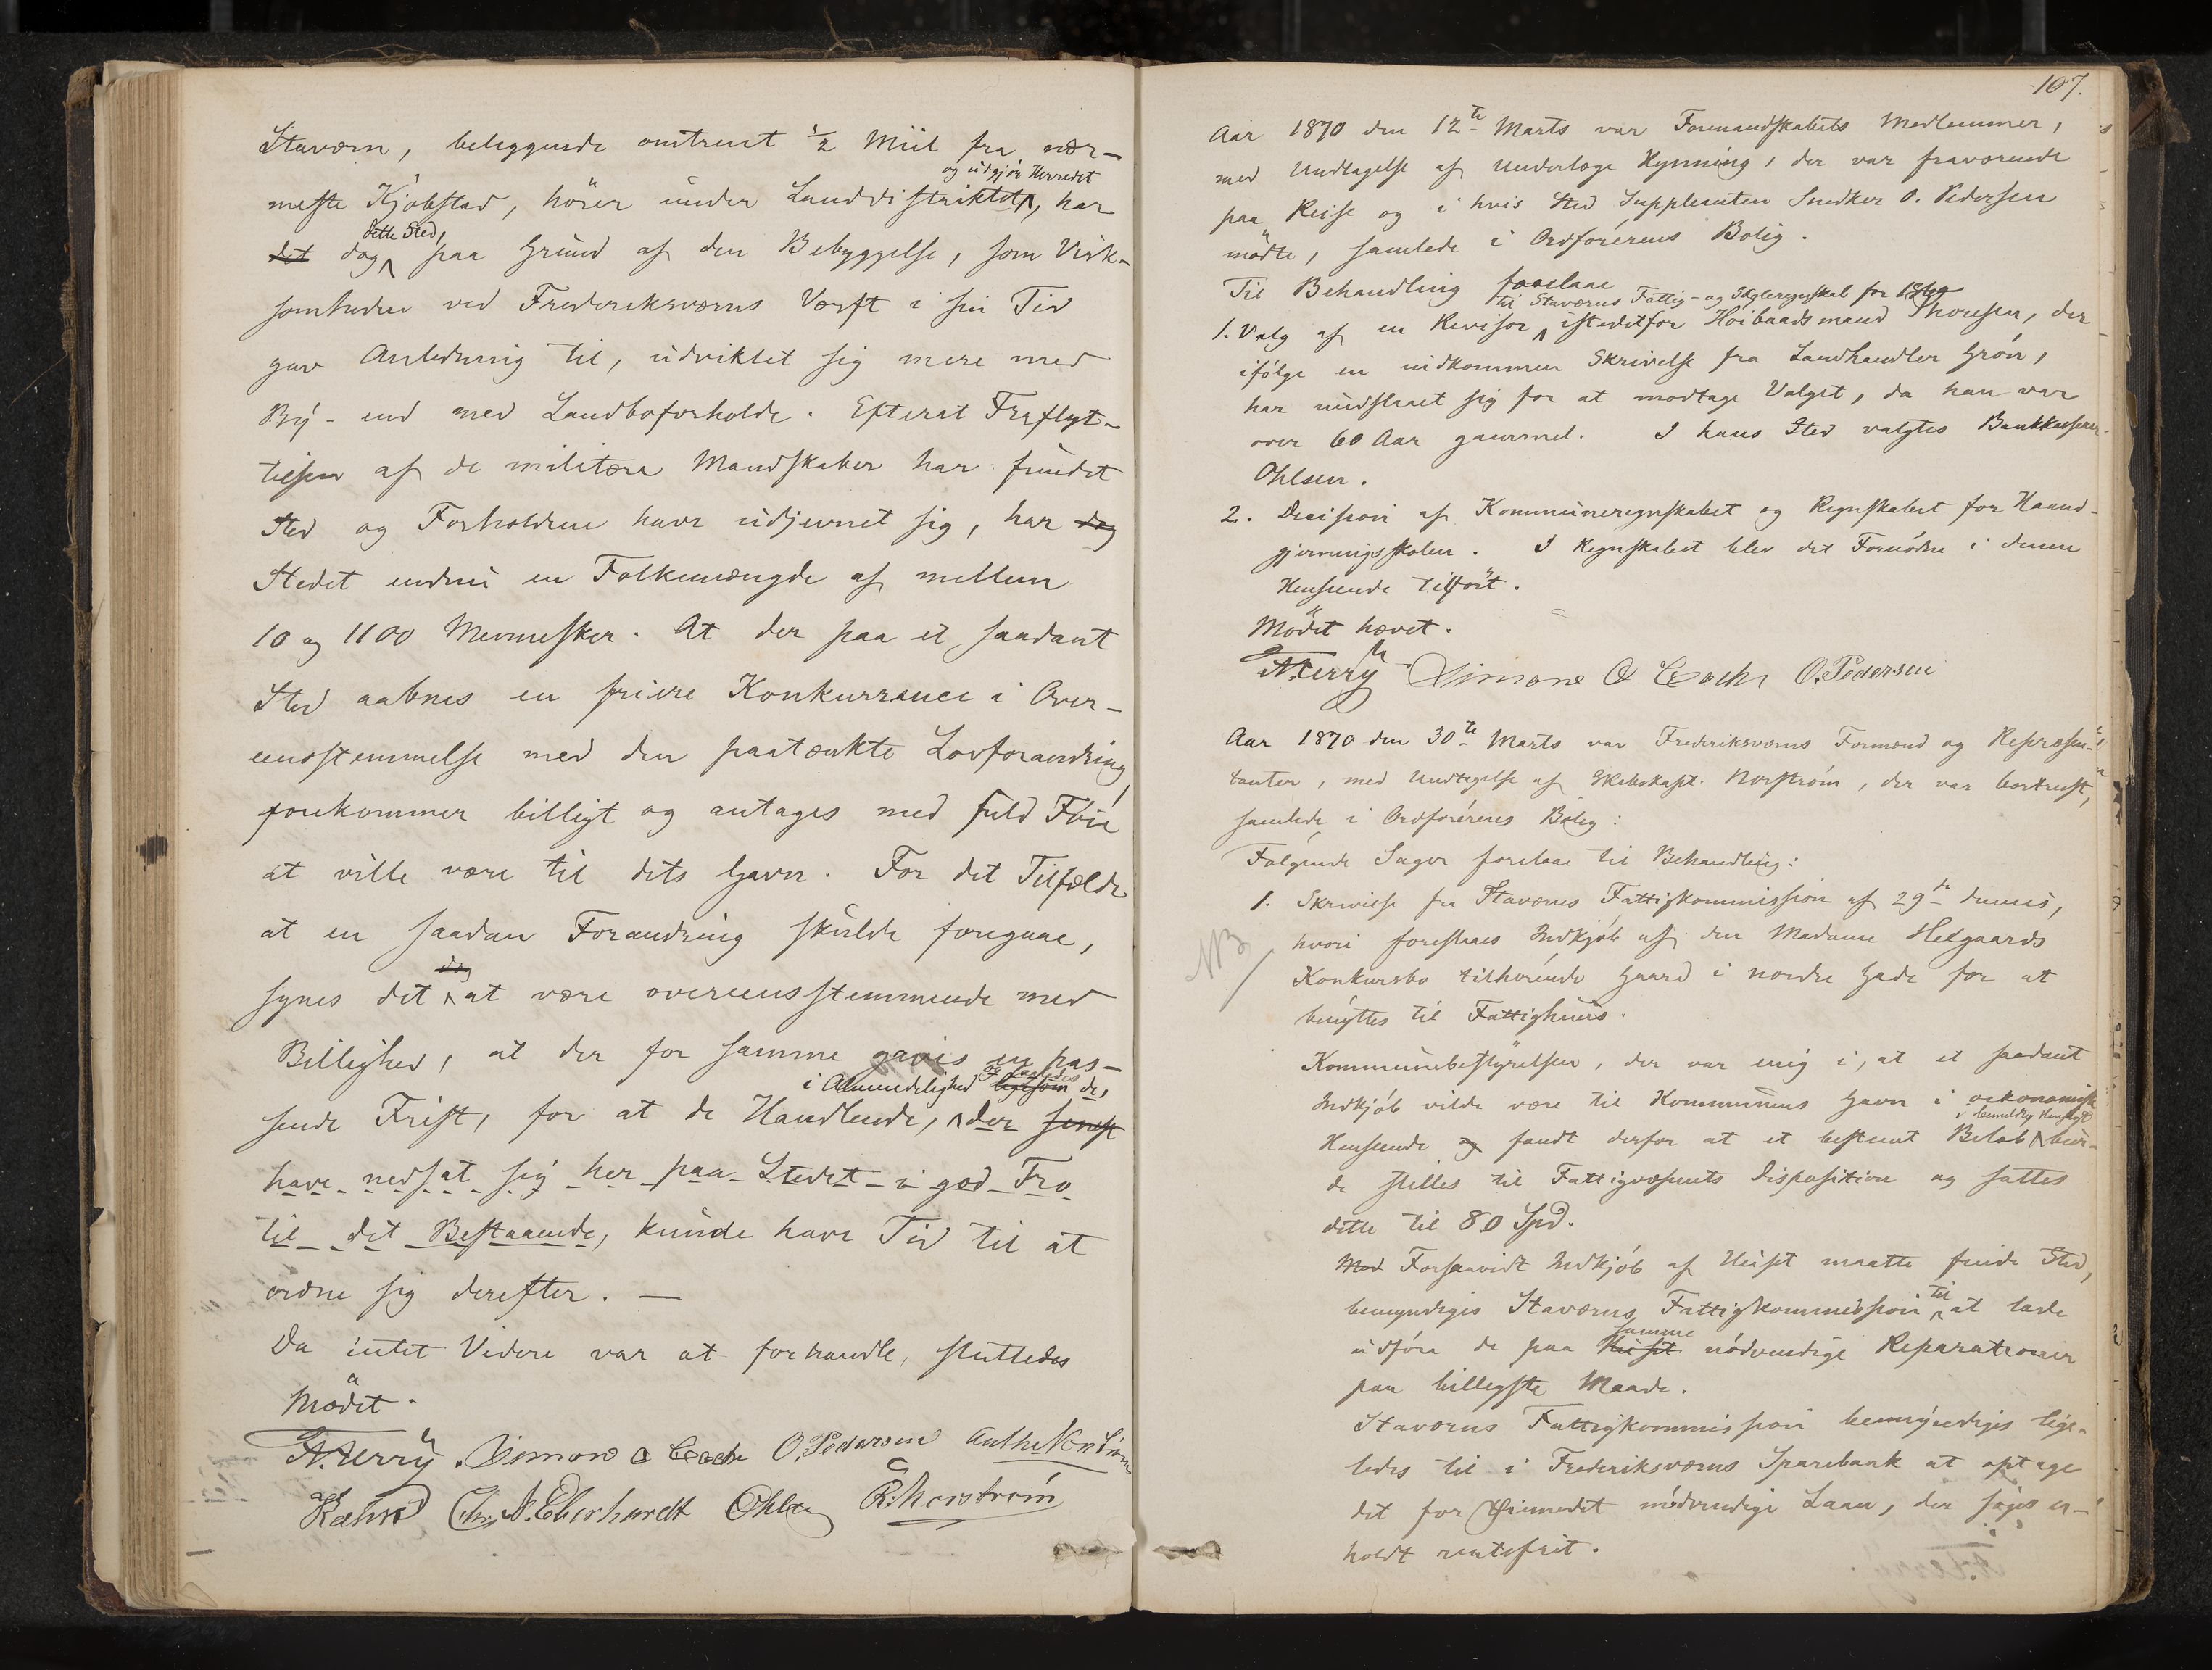 Staværn, beliggende omtrent ½ Miil fra nær-
og udgjör Herredet
meste Kjøbstad, hörer under Landdistriktet, har
dette Sted,
det dog paa Grund af den Bebyggelse, som Virk-
somheden ved Frederiksværns Værft i sin Tid
gav Anledning til, udviklet sig mere med
By- end med Landboforholde. Efterat Fraflyt-
telsen af de militære Mandskaber har fundet
Sted og Forholdene have udjevnet sig, har dog
Stedet endnu en Folkemængde af mellem
10 og 1100 Mennesker. At der paa et saadant
Sted aabnes en friere Konkurrance i Over-
eensstemmelse med den paatænkte Lovforandring,
forekommer billigt og antages med fuld Föie
at ville være til dets Gavn. For det Tilfælde
at en saadan Forandring skulde foregaae,
dog
synes det at være overeensstemmende med
Billighed, at der for samme gaves en pas-
i Almindelighed ligesom de,
sende Frist, for at de Handlende, der senest
have nedsat sig her paa Stedet i god Tro
til det Bestaaende, kunde have Tid til at
ordne sig derefter. —
Da intet Videre var at forhandle, sluttedes
Mödet.
A. Terry. Simon O Coch O. Pedersen
Chr. A. Eberhardt Ohlsen R. Norström
107.
Aar 1870 den 12te Marts var Formandskabets Medlemmer,
med Undtagelse af Underlæge Hynning, der var fraværende
paa Reise og i hvis Sted Suppleanten Snedker O. Pedersen
mödte, samlede i Ordförerens Bolig.
Til Behandling forelaae
til Staværns Fattig- og Skoleregnskab for
1. Valg af en Revisor istedetfor Höibaadsmand Thoresen, der
ifölge en indkommen Skrivelse fra Landhandler Grön,
har undslaaet sig for at modtage Valget, da han var
over 60 Aar gammel. I hans Sted valgtes Bankkasserer
Ohlsen.
2. Decision af Kommuneregnskabet og Regnskabet for Haand-
gjerningsskolen. I Regnskabet blev det Fornödne i denne
Henseende tilfört.
Mödet hævet.
A. Terry Simon O Coch O. Pedersen
Aar 1870 den 30te Marts var Frederiksværns Formænd og Repræsen-
tanter, med Undtagelse af Skibskapt. Norström, der var bortreist,
samlede i Ordförerens Bolig:
Fölgende Sager forelaae til Behandling:
NB
1. Skrivelse fra Staværns Fattigkommission af 29de dennes,
hvori foreslaaes Indkjöb af den Madame Helgaards
Konkursbo tilhörende Gaard i nordre Gade for at
benyttes til Fattighuus.
Kommunebestyrelsen, der var enig i, at et saadant
Indkjöb vilde være til Kommunens Gavn i oekonomisk
i bemeldte Henseende
Henseende og fandt derfor at et bestemt Belöb bur-
de stilles til Fattigvæsenets Disposition og sattes
dette til 80 Spd.
Med Forsaavidt Indkjöb af Huset maatte finde Sted,
til
bemyndiges Staværns Fattigkommission at lade
samme
udföre de paa Huset nödvendige Reparationer
paa billigste Maade.
Staværns Fattigkommission bemyndiges lige-
ledes til i Frederiksværns Sparebank at optage
det for Öiemedet nödvendige Laan, der söges er-
holdt rentefrit.